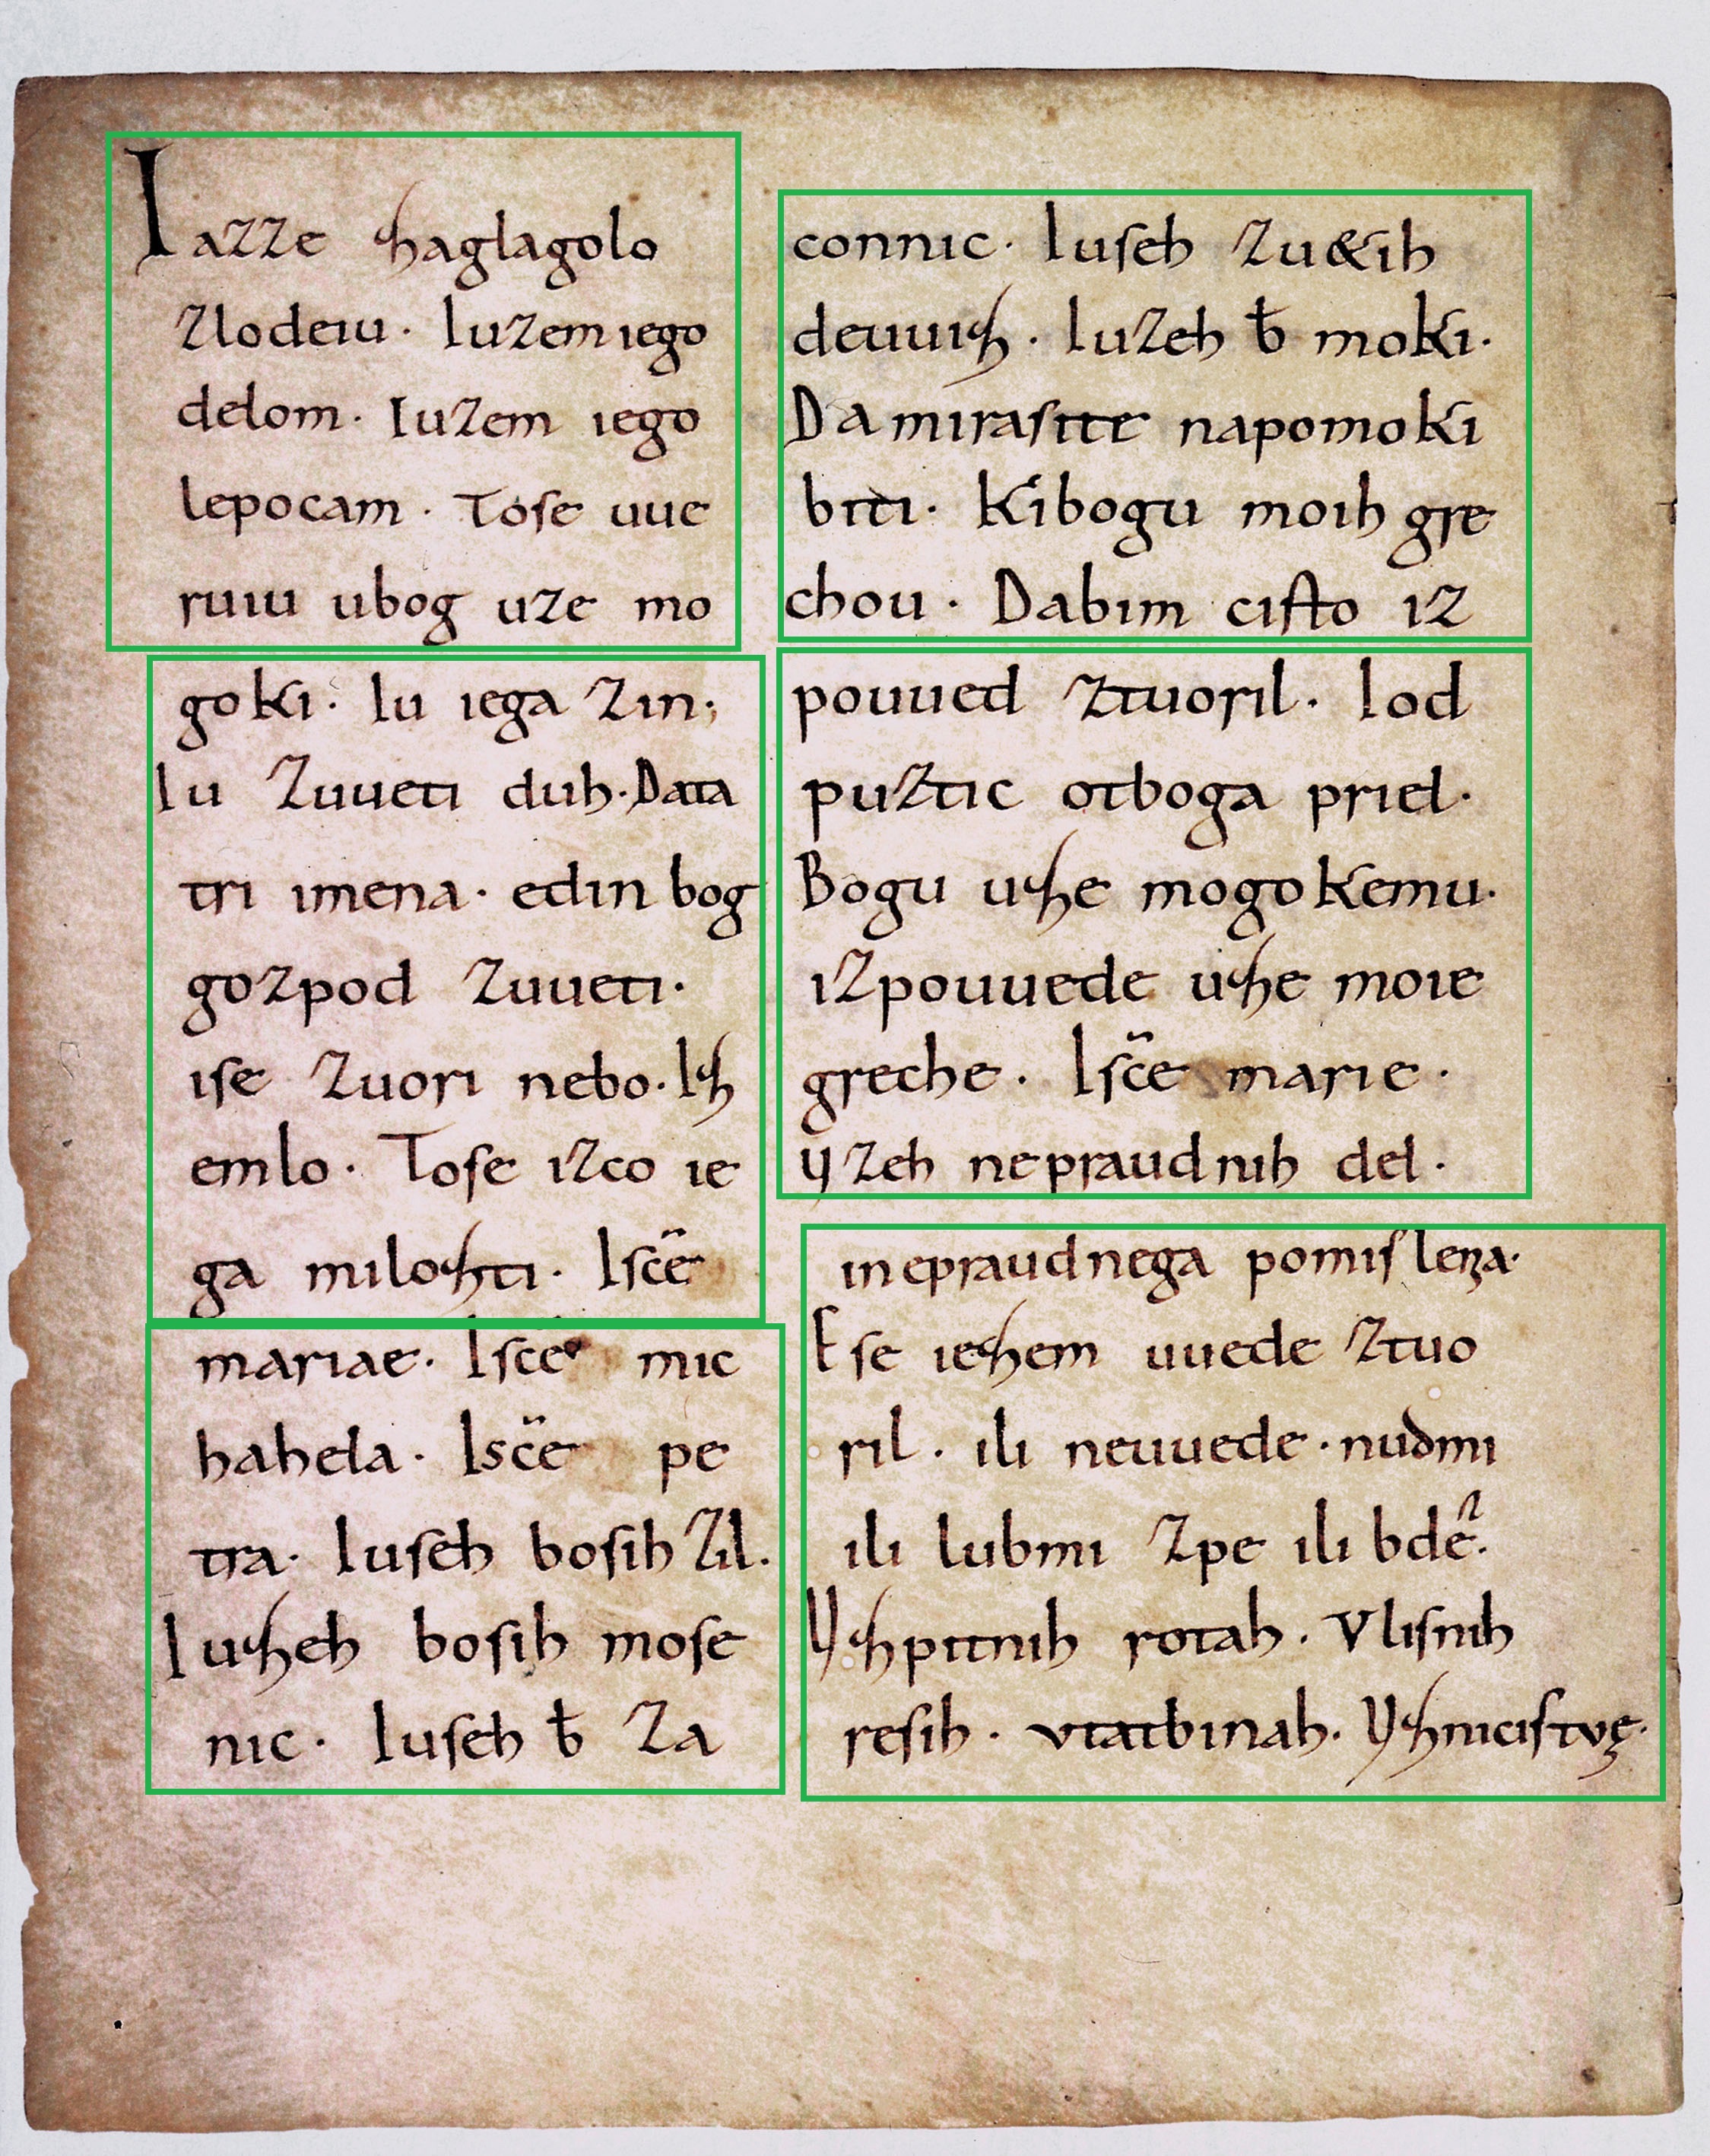 I azze ꜩhaglagolo
zlodeiu· Iuzem iego
delom· Iuzem iego
lepocam· Tose uue
ruiu ubog uze mo
goki· Iu iega zin;
Iu zuueti duh· Data
tri imena· edin bog
gozpod zuueti·
ise zuori nebo· Iꜩh
emlo· Tose izco ie
ga miloꜩhti· Isc̄e
mariae· Isc̄e mic
hahela· Isc̄e pe
tra· Iuseh bosih zil·
Iuꜩheh bosih mose
nic· Iuseh ƀ za
connic· Iuseh zu&ih
deuuiꜩh· Iuzeh ƀ moki·
Da mirasite napomoki
biti· Kibogu moih gre
chou· Dabim cisto iz
pouued ztuoril· Iod
puztic otboga priel·
Bogu uꜩhe mogokemu·
izpouuede uꜩhe moie
greche· Isc̄e marie·
Y zeh nepraudnih del·
inepraudnega pomislenza·
Ese ieꜩhem uuede ztuo
ril· ili neuuede· nudmi
ili lubmi zpe ili bdeˀ·
Yꜩhpitnih rotah· Vlisnih
resih· vtatbinah· Yꜩhnicistvę·